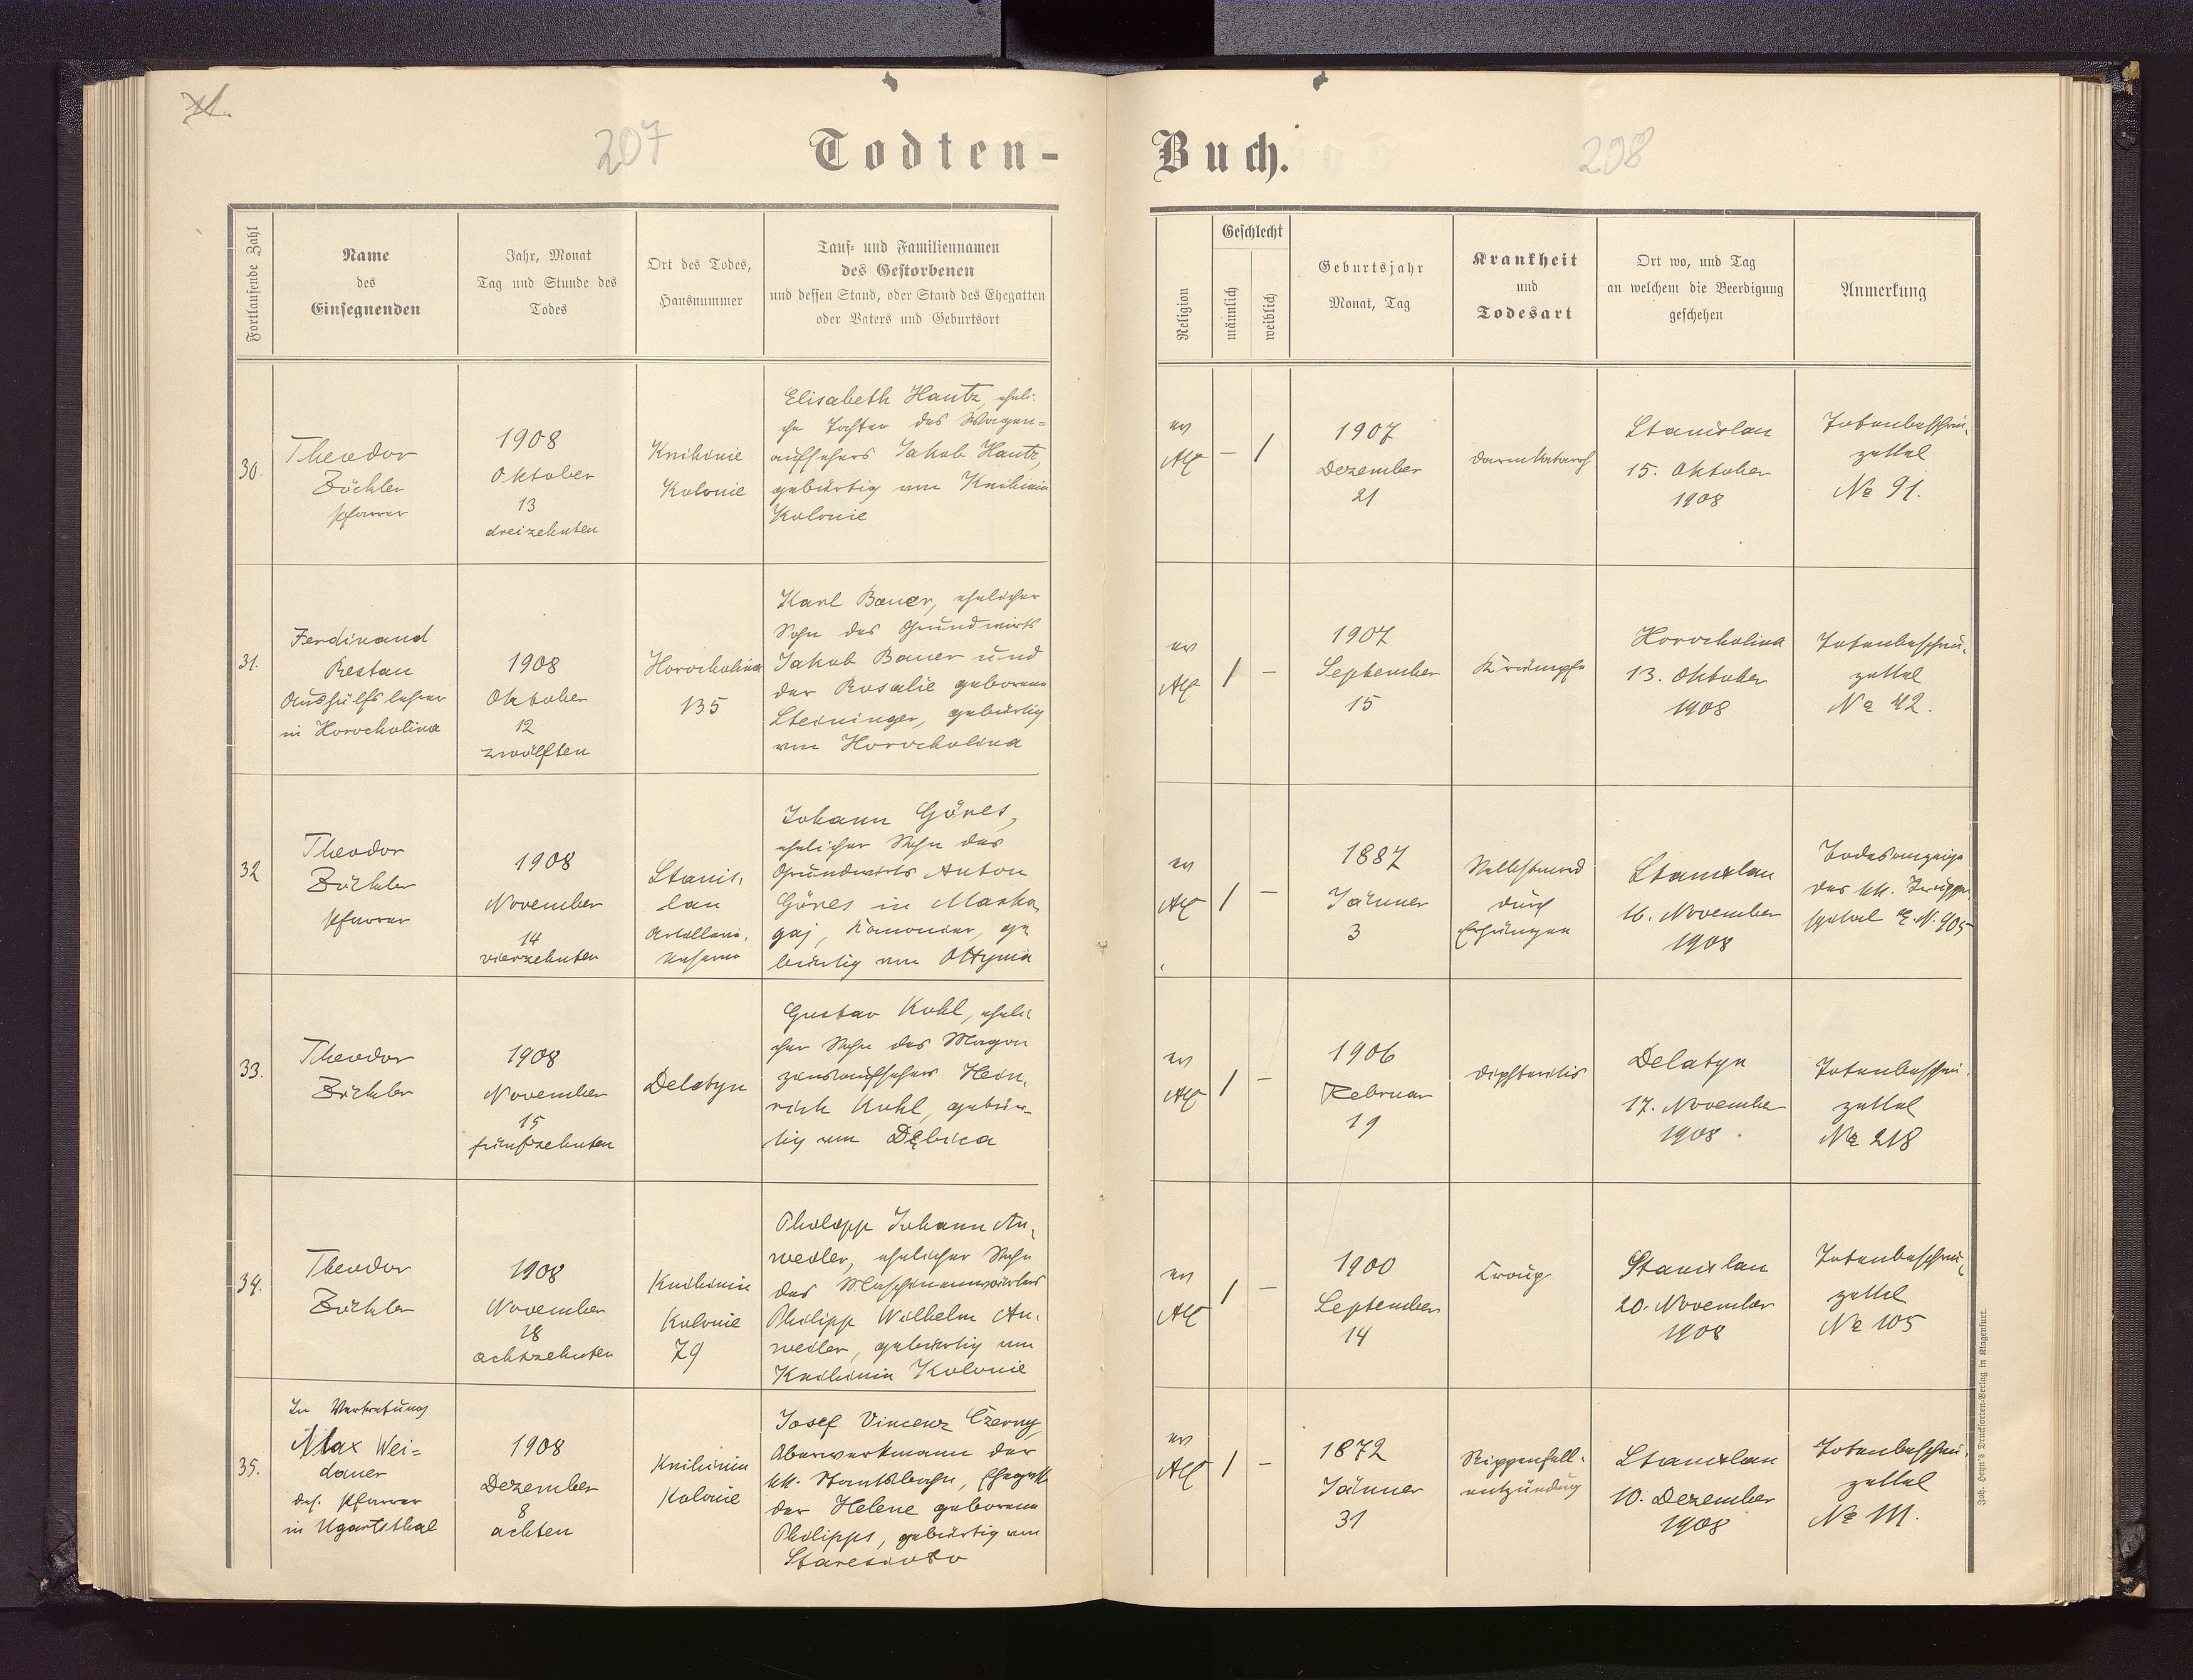 207
Todten-
Fortlaufende Zahl
Name
des
Einsegnenden
Jahr, Monat
Tag und Stunde des
Todes
Ort des Todes,
Hausnummer
Tauf- und Familiennamen
des Gestorbenen
und dessen Stand, oder Stand des Ehegatten
oder Vaters und Geburtsort
30.
Theodor
Zöckler
Pfarrer
1908
Oktober
13
dreizehnten
Knihinin
Kolonie
Elisabeth Hautz, eheli-
che Tochter des Wagen-
aufsehers Jakob Hautz,
gebürtig von Knihinin
Kolonie
31.
Ferdinand
Restau
Aushülfslehrer
in Horocholina
1908
Oktober
12
zwölften
Horocholina
135
Karl Bauer, ehelicher
Sohn des Grundwirts
Jakob Bauer und
der Rosalie geborene
Steininger, gebürtig
von Horocholina
32
Theodor
Zöckler
Pfarrer
1908
November
14
vierzehnten
Stanis-
lau
Artillerie-
kaserne
Johann Göres,
ehelicher Sohn des
Grundwirts Anton
Göres in Maska
gaj, Kanonier, ge
bürtig von Ottynia
33.
Theodor
Zöckler
1908
November
15
fünfzehnten
Delatyn
Gustav Kohl, eheli
cher Sohn des Maga
zinsaufsehers Hein-
rich Kohl, gebür-
tig von Dębica
34.
Theodor
Zöckler
1908
November
18
achtzehnten
Knihinin
Kolonie
79
Philipp Johann An-
weiler, ehelicher Sohn
des Maschinenwärters
Philipp Wilhelm An-
weiler, gebürtig von
Knihinin Kolonie
35.
In Vertretung
Max Wei=
dauer
des. Pfarrer
in Ugartsthal
1908
Dezember
8
achten
Knihinin
Kolonie
Josef Vincenz Czerny,
Oberwerkmann der
kk. Staatsbahn, Ehegatte
der Helene geborene
Philipps, gebürtig von
Buch.
208
Religion
Geschlecht
männlich
weiblich
Geburtsjahr
Monat, Tag
Krankheit
und
Todesart
Ort wo, und Tag
an welchem die Beerdigung
geschehen
Anmerkung
ev
AC
–
/
1907
Dezember
21
Darmkatarrh
Stanislau
15. Oktober
1908
Totenbeschau-
zettel
№ 91.
ev
AC
/
–
1907
September
15
Krämpfe
Horocholina
13. Oktober
1908
Totenbeschau-
zettel
№ 42.
ev
AC
/
–
1887
Jänner
3
Selbstmord
durch
Erhängen
Stanislau
16. November
1908
Todesanzeige
des kk. Truppen
spital E.N. 905
ev
AC
/
–
1906
Februar
19
Diphteritis
Delatyn
17. November
1908.
Totenbeschau-
zettel
№ 218
ev
AC
/
–
1900
September
14
Croup
Stanislau
20. November
1908
Totenbeschau-
zettel
№ 105
ev
AC
/
–
1872
Jänner
31
Rippenfell-
entzündung
Stanislau
10. Dezember
1908
Totenbeschau-
zettel
№ 111.
Joh. Heyn's Drucksorten-Verlag in Klagenfurt.